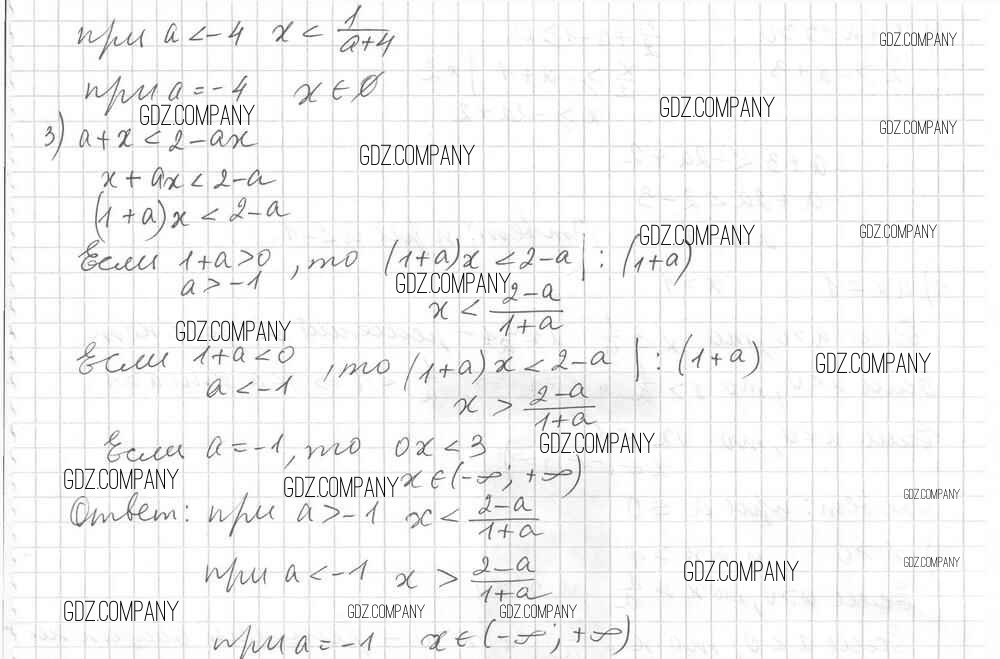 при a < -4   x < 1/(a+4)
GDZ.COMPANY
при a = -4   x ∈ ∅
GDZ.COMPANY
GDZ.COMPANY
GDZ.COMPANY
3) a + x < 2 - ax
GDZ.COMPANY
x + ax < 2 - a
(1 + a)x < 2 - a
GDZ.COMPANY
GDZ.COMPANY
Если 1 + a > 0, то (1 + a)x < 2 - a | : (1 + a)
a > -1
GDZ.COMPANY
x < (2 - a)/(1 + a)
GDZ.COMPANY
Если 1 + a < 0, то (1 + a)x < 2 - a | : (1 + a)
GDZ.COMPANY
a < -1
x > (2 - a)/(1 + a)
Если a = -1, то 0x < 3
GDZ.COMPANY
x ∈ (-∞; +∞)
GDZ.COMPANY
GDZ.COMPANY
GDZ.COMPANY
Ответ: при a > -1   x < (2 - a)/(1 + a)
GDZ.COMPANY
при a < -1   x > (2 - a)/(1 + a)
GDZ.COMPANY
GDZ.COMPANY
GDZ.COMPANY
GDZ.COMPANY
при a = -1   x ∈ (-∞; +∞)